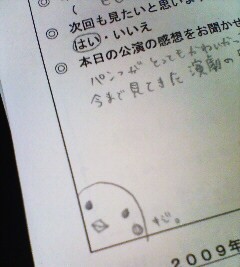 ◎ 次回も見たいと思いま
はい・いいえ
◎ 本日の公演の感想をお聞かせ
パンツが とってもかわいかっ
今まで見てきた 演劇の
じ。
2009年